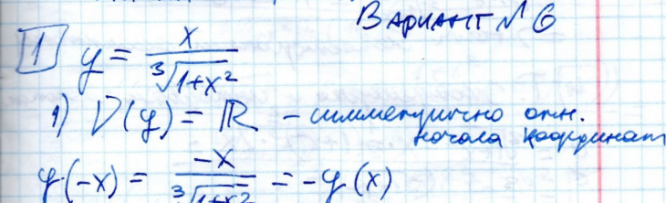 Вариант №6
1 y = x / ∛(1+x²)
1) D(y) = ℝ – симметрично отн. начала координат
y(-x) = -x / ∛(1+x²) = -y(x)